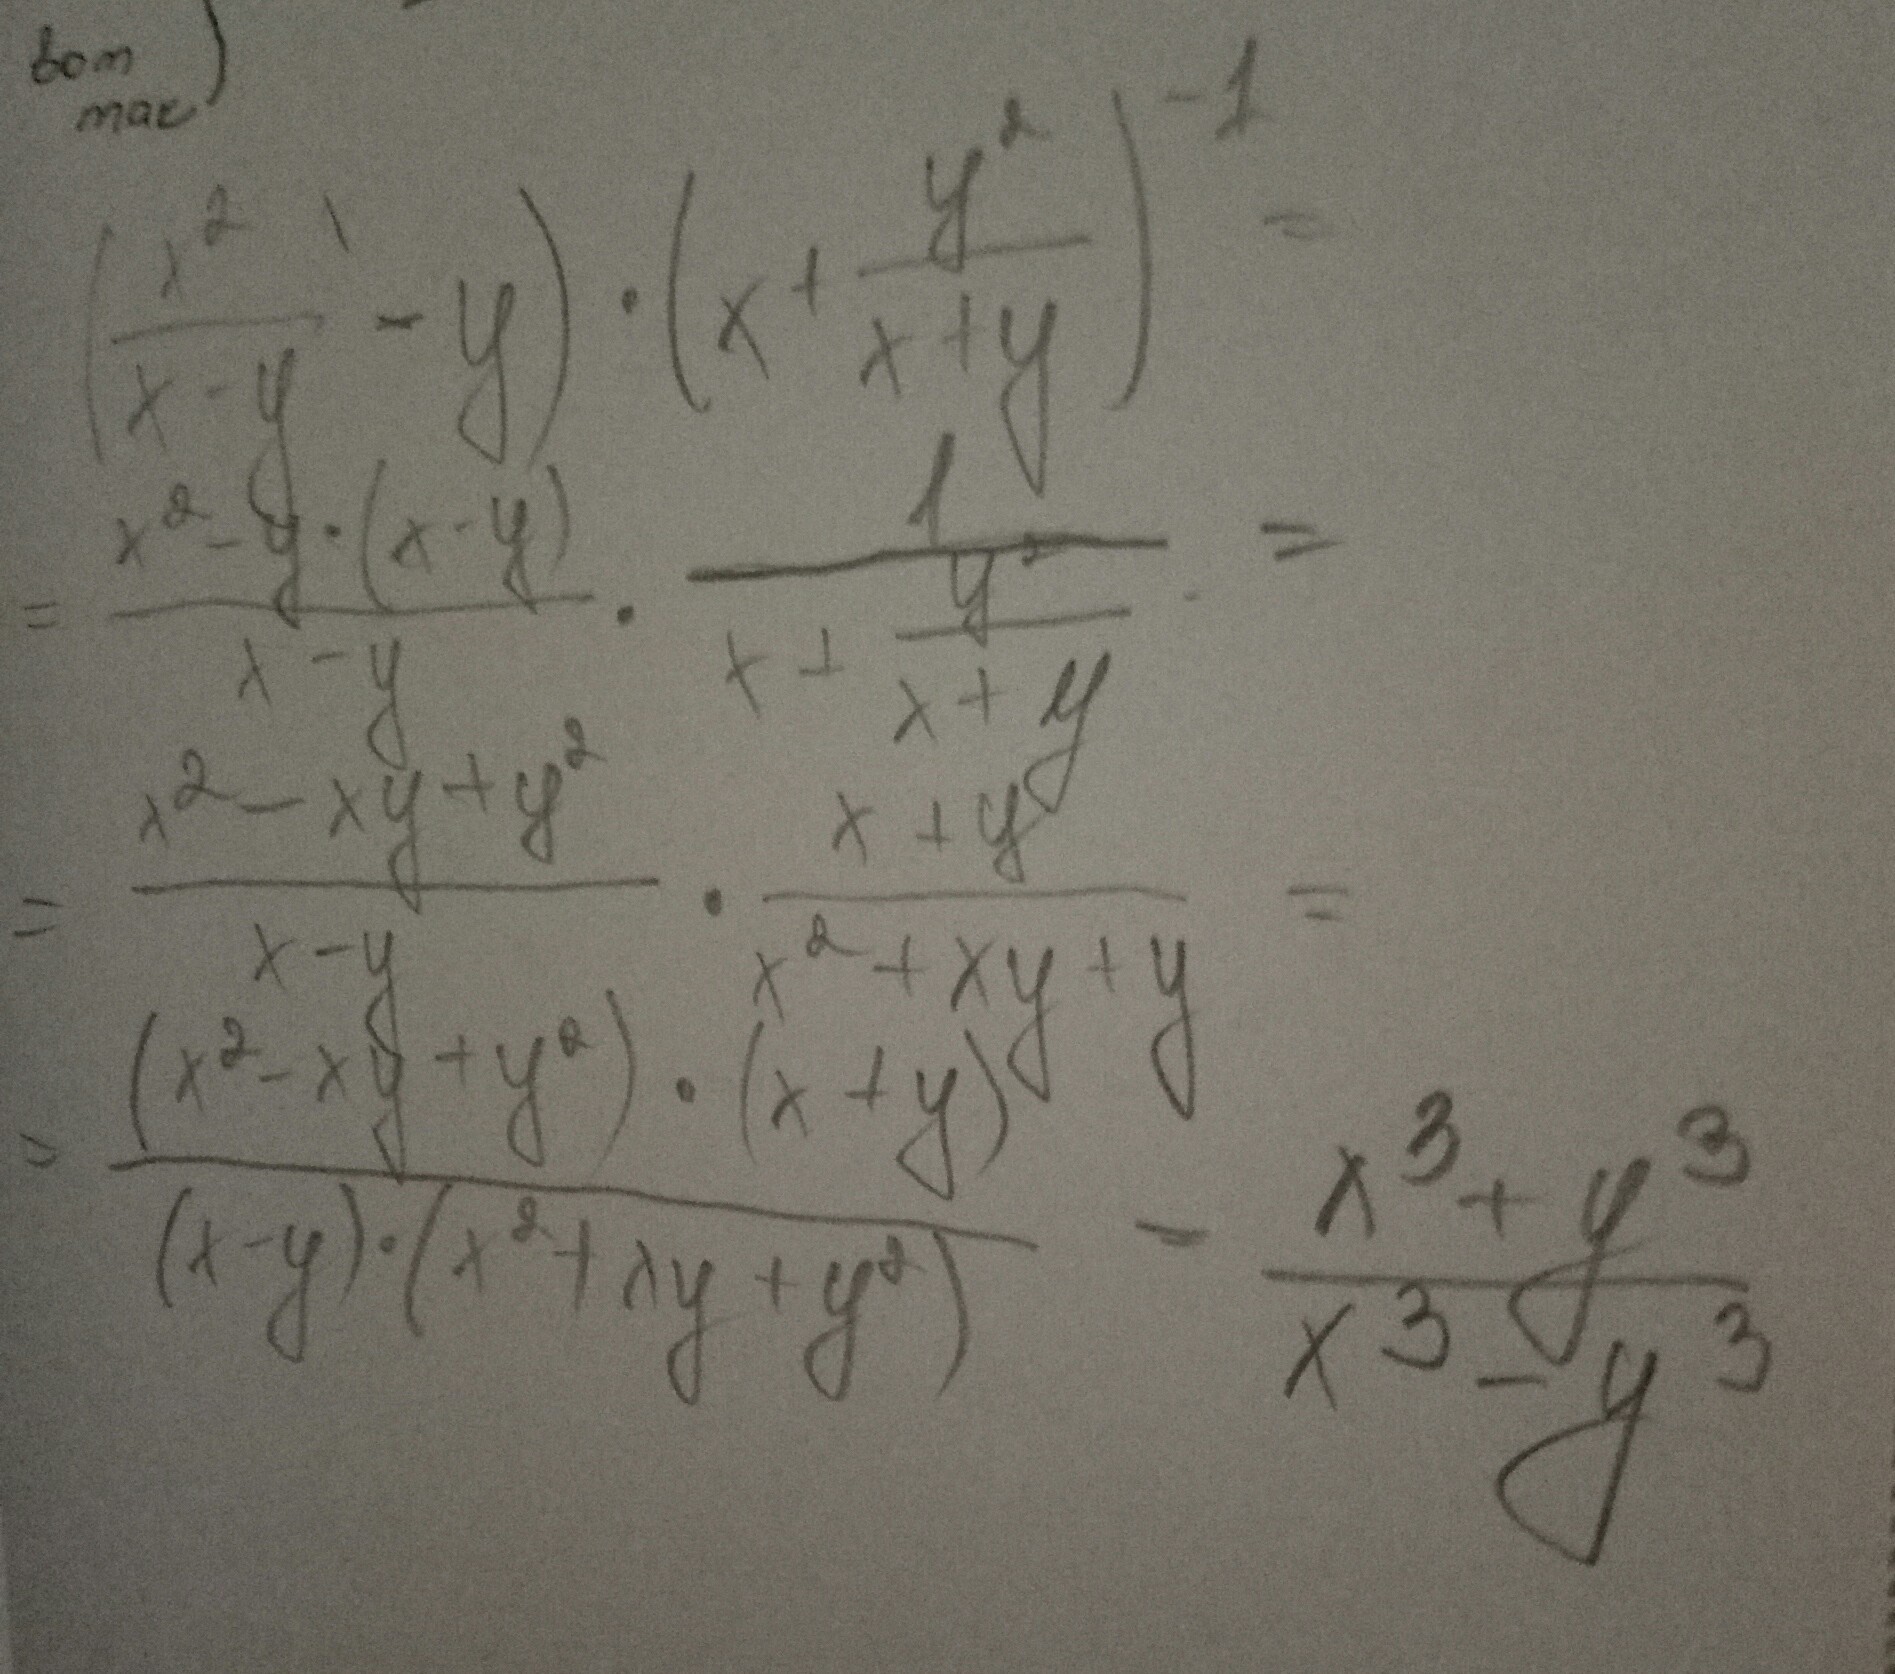 вот
так)
(x²/(x-y) - y) · (x + y²/(x+y))⁻¹ =
= (x² - y·(x-y))/(x-y) · 1/(x + y²/(x+y)) =
= (x² - xy + y²)/(x-y) · (x+y)/(x² + xy + y) =
= ((x² - xy + y²)·(x+y))/((x-y)·(x² + xy + y²)) = (x³ + y³)/(x³ - y³)